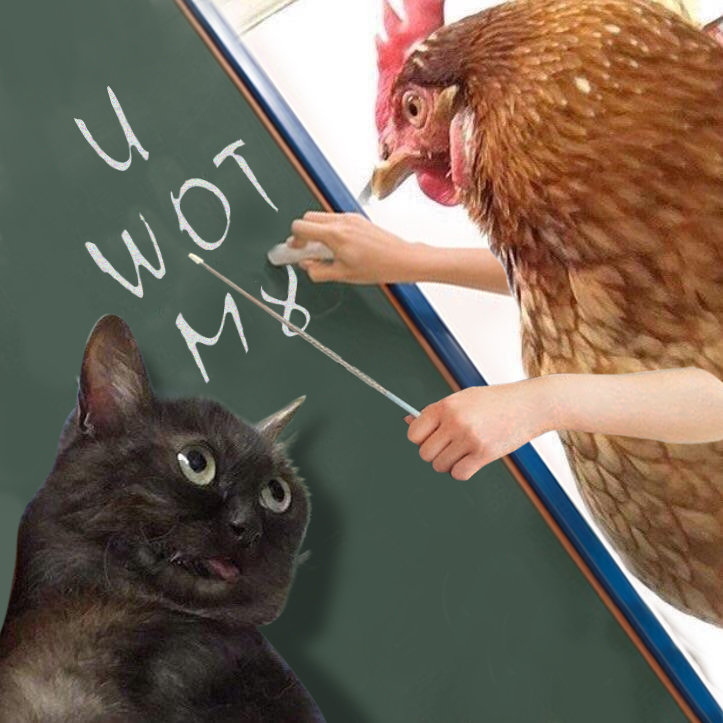 U
WOT
M8